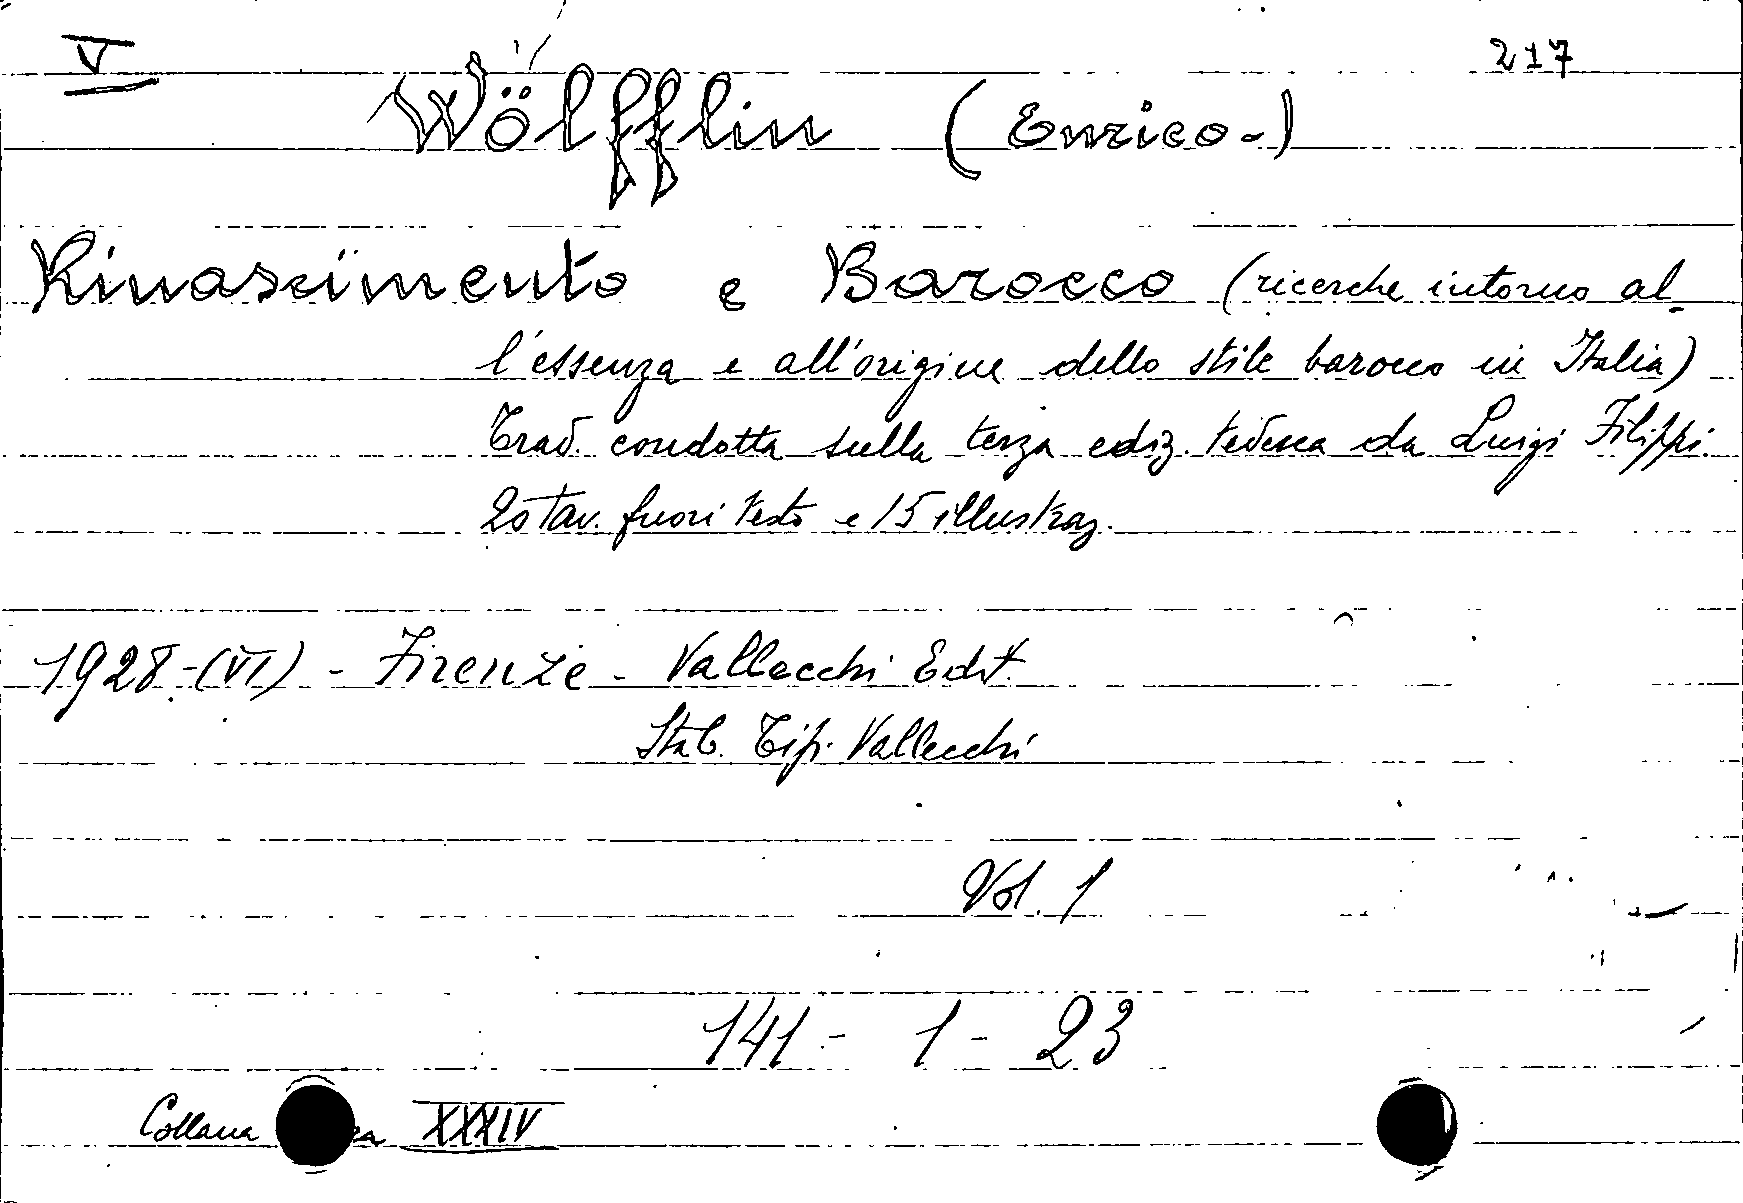 V 217
Wölfflin (Enrico-)
Rinascimento e Barocco (ricerche intorno al-
l'essenza e all'origine dello stile barocco in Italia)
Trad. condotta sulla terza ediz. tedesca da Luigi Filippi.
20 tav. fuori testo e 15 illustraz.
1928-(VI) - Firenze - Vallecchi Edit.
Stab. Tip. Vallecchi
Vol. 1
141 - 1 - 23
Collana XXXIV